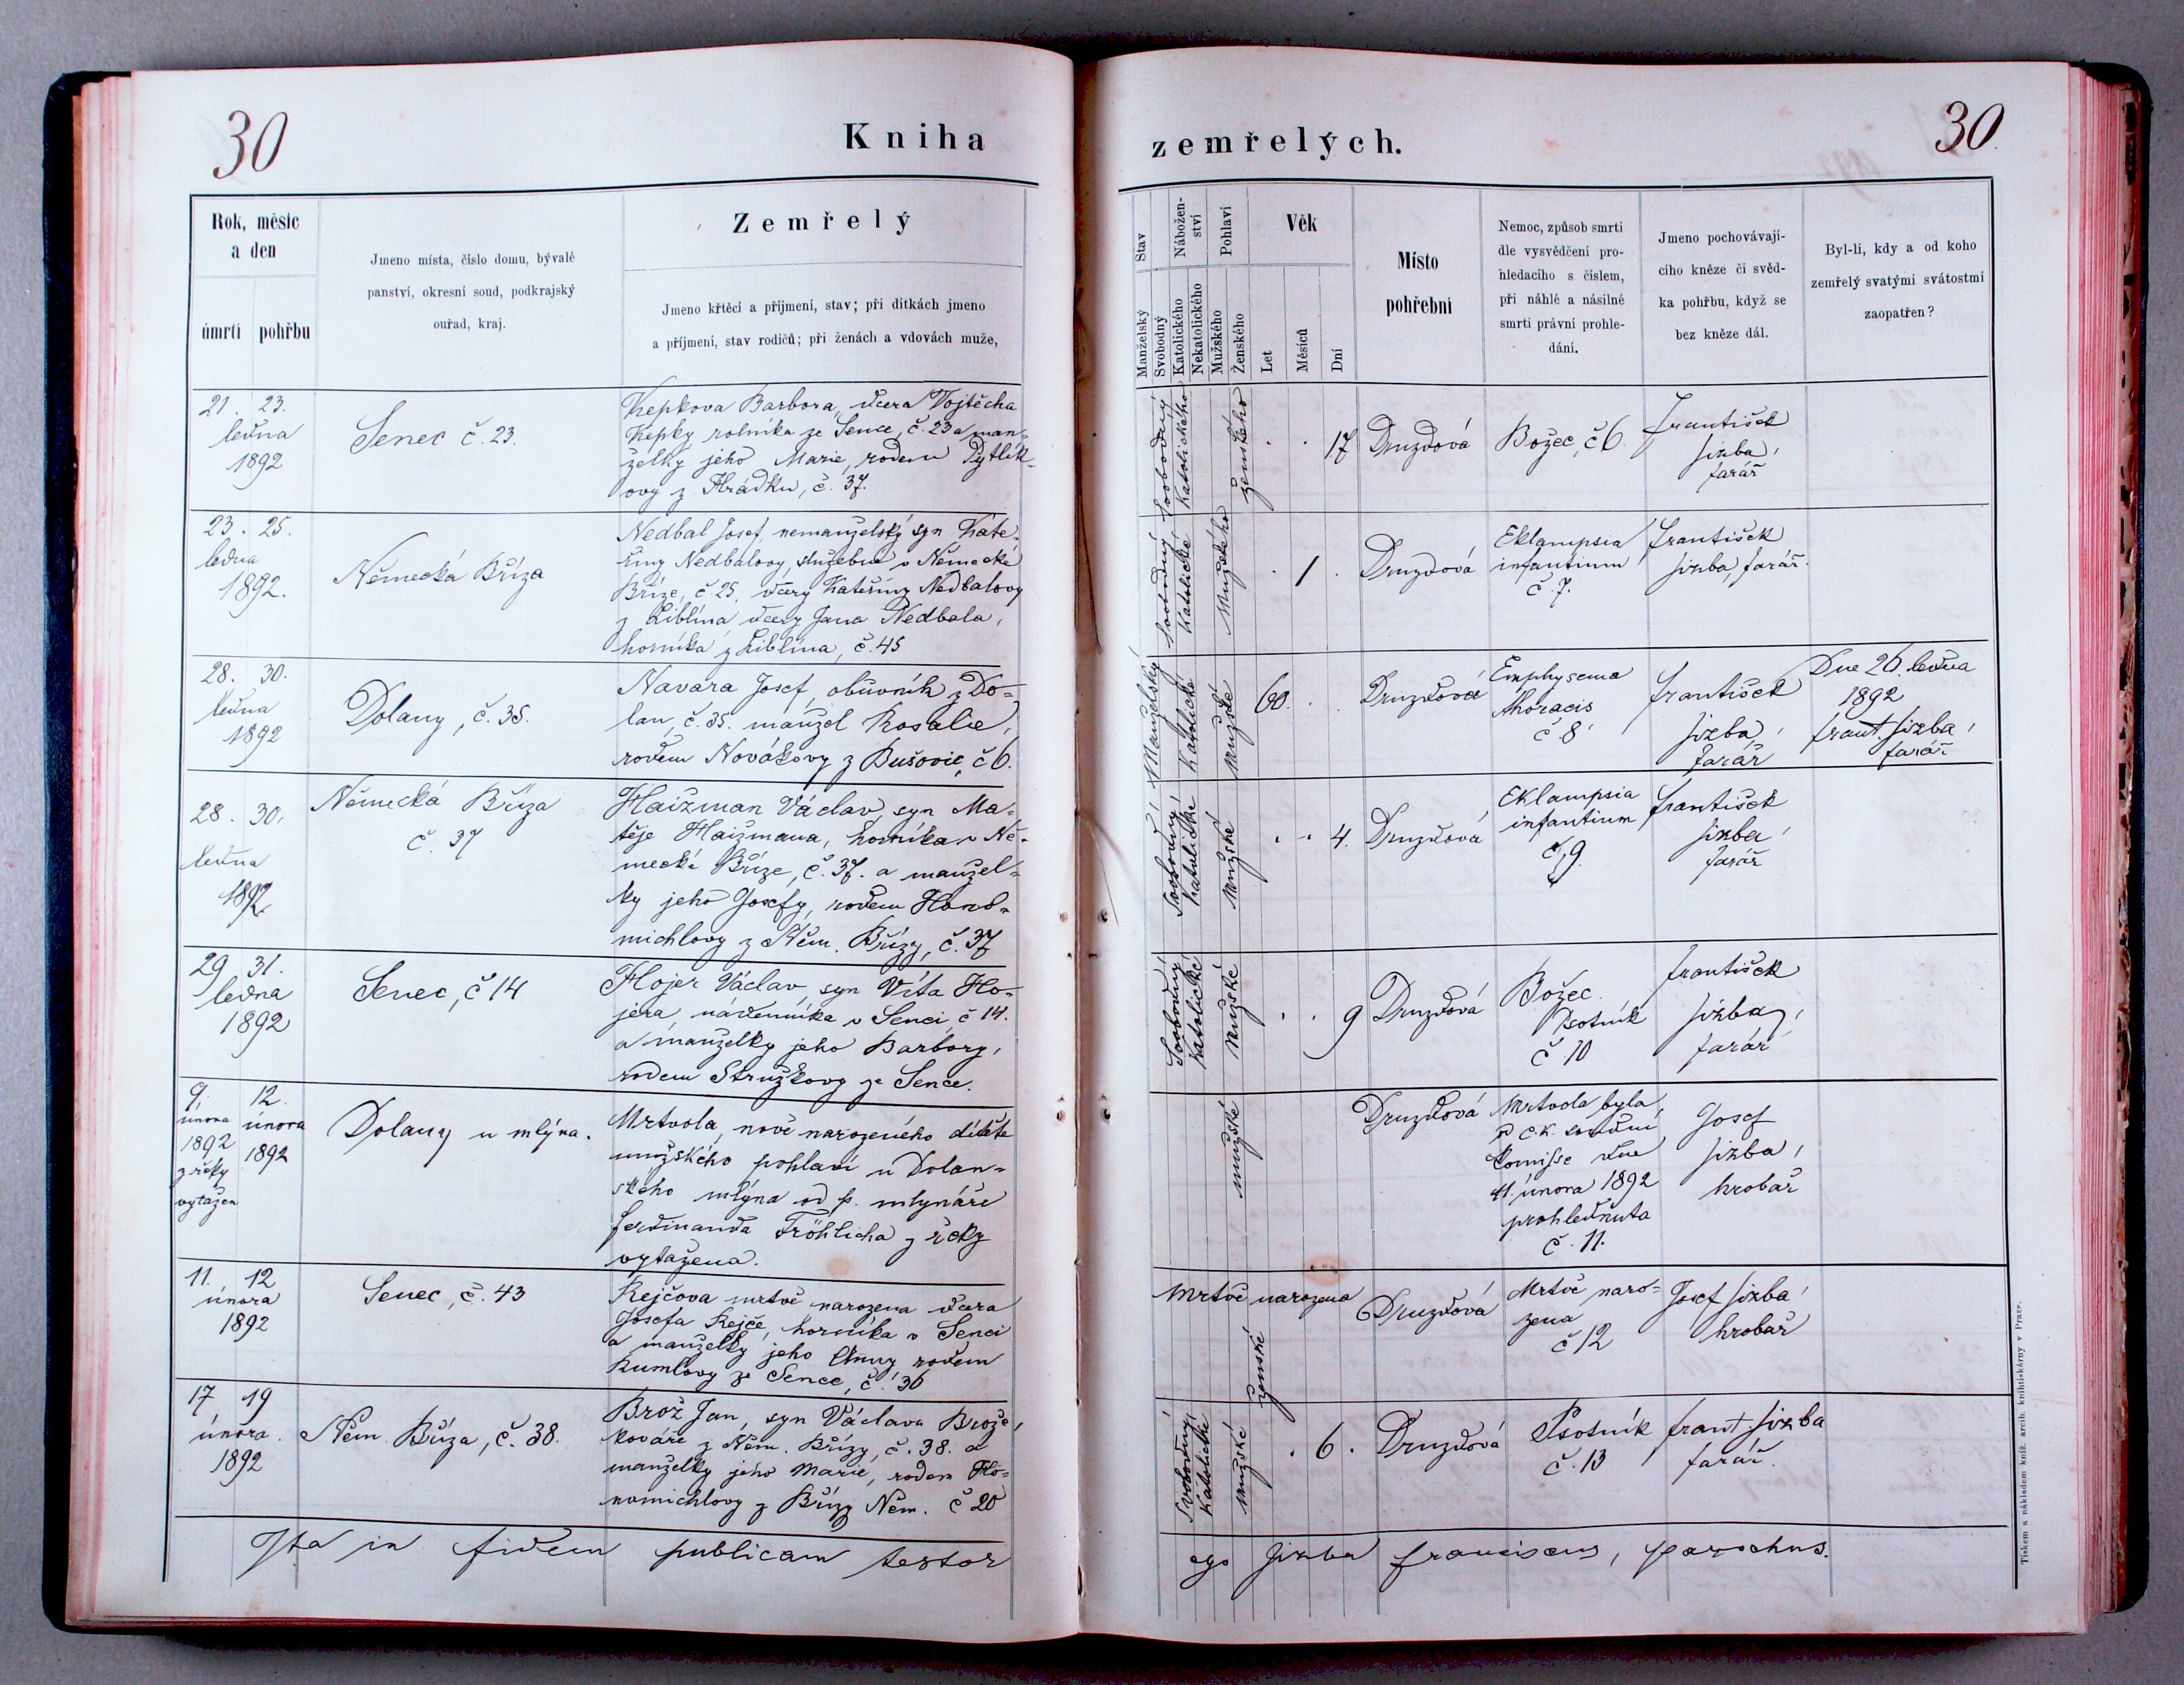 30
Kniha
zemřelých.
30.
Rok, měsíc
a den
úmrtí pohřbu
Jmeno místa, číslo domu, bývalé
panství, okresní soud, podkrajský
ouřad, kraj.
Zemřelý
Jmeno křtěcí a příjmení, stav; při dítkách jmeno
a příjmení, stav rodičů; při ženách a vdovách muže,
Stav
Manželský
Svobodný
Nábožen-
ství
Katolického
Nekatolického
Pohlaví
Mužského
Ženského
Věk
Let
Měsíců
Dní
Místo
pohřební
Nemoc, způsob smrti
dle vysvědčení pro-
hledacího s číslem,
při náhlé a násilné
smrti právní prohle-
dání.
Jmeno pochovávají-
cího kněze či svěd-
ka pohřbu, když se
bez kněze dál.
Byl-li, kdy a od koho
zemřelý svatými svátostmi
zaopatřen?
21. 23.
ledna
1892
Senec č. 23.
Kepkova Barbora, dcera Vojtěcha
Kepky rolníka ze Sence, č. 23 a man-
želky jeho Marie, rodem Pytlík-
ovy z Hrádku, č. 37.
Svobodný
Katolického
ženského
. . 17
Druzdová
Božec, č 6.
František
Jizba,
farář
23. 25.
ledna
1892.
Německá Bříza
Nedbal Josef, nemanželský syn Kate-
řiny Nedbalovy, služebné v Německé
Bříze, č. 25, dcery Kateřiny Nedbalovy
z Liblína dcery Jana Nedbala,
horníka z Liblína, č. 45
Svobodný
Katolické
Mužského
. 1 .
Druzdová
Eklampsia
infantium
č. 7.
František
Jizba, farář.
28. 30.
ledna
1892
Dolany, č. 35.
Navara Josef, obuvník z Do-
lan, č. 35. manžel Rosalie,
rodem Novákovy z Bušovic, č 6.
Manželský
Katolické
Mužské
60. . .
Druzdová
Emphysema
thoracis
č 8
František
Jizba,
farář
Dne 26. ledna
1892
Frant. Jizba,
farář
28. 30.
ledna
1892.
Německá Bříza
č. 37
Haizman Václav, syn Ma-
těje Haizmana, horníka v Ně-
mecké Bříze, č. 37. a manžel-
ky jeho Josefy, rodem Hono-
michlovy z Něm. Břízy, č. 37
Svobodný
Katolické
Mužské
. . 4.
Druzdová
Eklampsia
infantium
č. 9.
František
Jizba,
farář
29 31.
ledna
1892
Senec, č 14
Hojer Václav, syn Víta Ho-
jera, nádenníka v Senci, č 14.
a manželky jeho Barbory,
rodem Stružkovy ze Sence.
Svobodný
Katolické
Mužské
. . 9
Druzdová
Božec.
Psotník
č 10
František
Jizba,
farář
9. 12.
února února
1892 1892
z řeky
vytažen
Dolany u mlýna.
Mrtvola nově narozeného dítěte
mužského pohlaví u Dolan-
ského mlýna od p. mlynáře
Ferdinanda Fröhlicha z řeky
vytažena.
mužské
Druzdová
Mrtvola byla
c.k. soudní
komisse dne
11. února 1892
prohlednuta
č. 11.
Josef
Jizba,
hrobař
11. 12
února
1892
Senec, č. 43
Rejčova mrtvě narozena dcera
Josefa Rejče, horníka v Senci
a manželky jeho Anny rodem
Rumlovy ze Sence, č. 36
Mrtvě narozena
ženské
Druzdová
Mrtvě naro-
zena
č 12
Josef Jizba,
hrobař
17 19
února.
1892
Něm. Bříza, č. 38.
Brož Jan, syn Václava Brože,
kováře z Něm. Břízy, č. 38. a
manželky jeho Marie, rodem Ho-
nomichlovy z Břízy Něm. č 20
Svobodný
Katolické
mužské
. 6 .
Druzdová
Psotník
č. 13
Frant. Jizba
farář.
Ita in fidem publicam testor
ego Jizba Franciscus, parochus.
Tiskem a nákladem kníž. arcib. knihtiskárny v Praze.